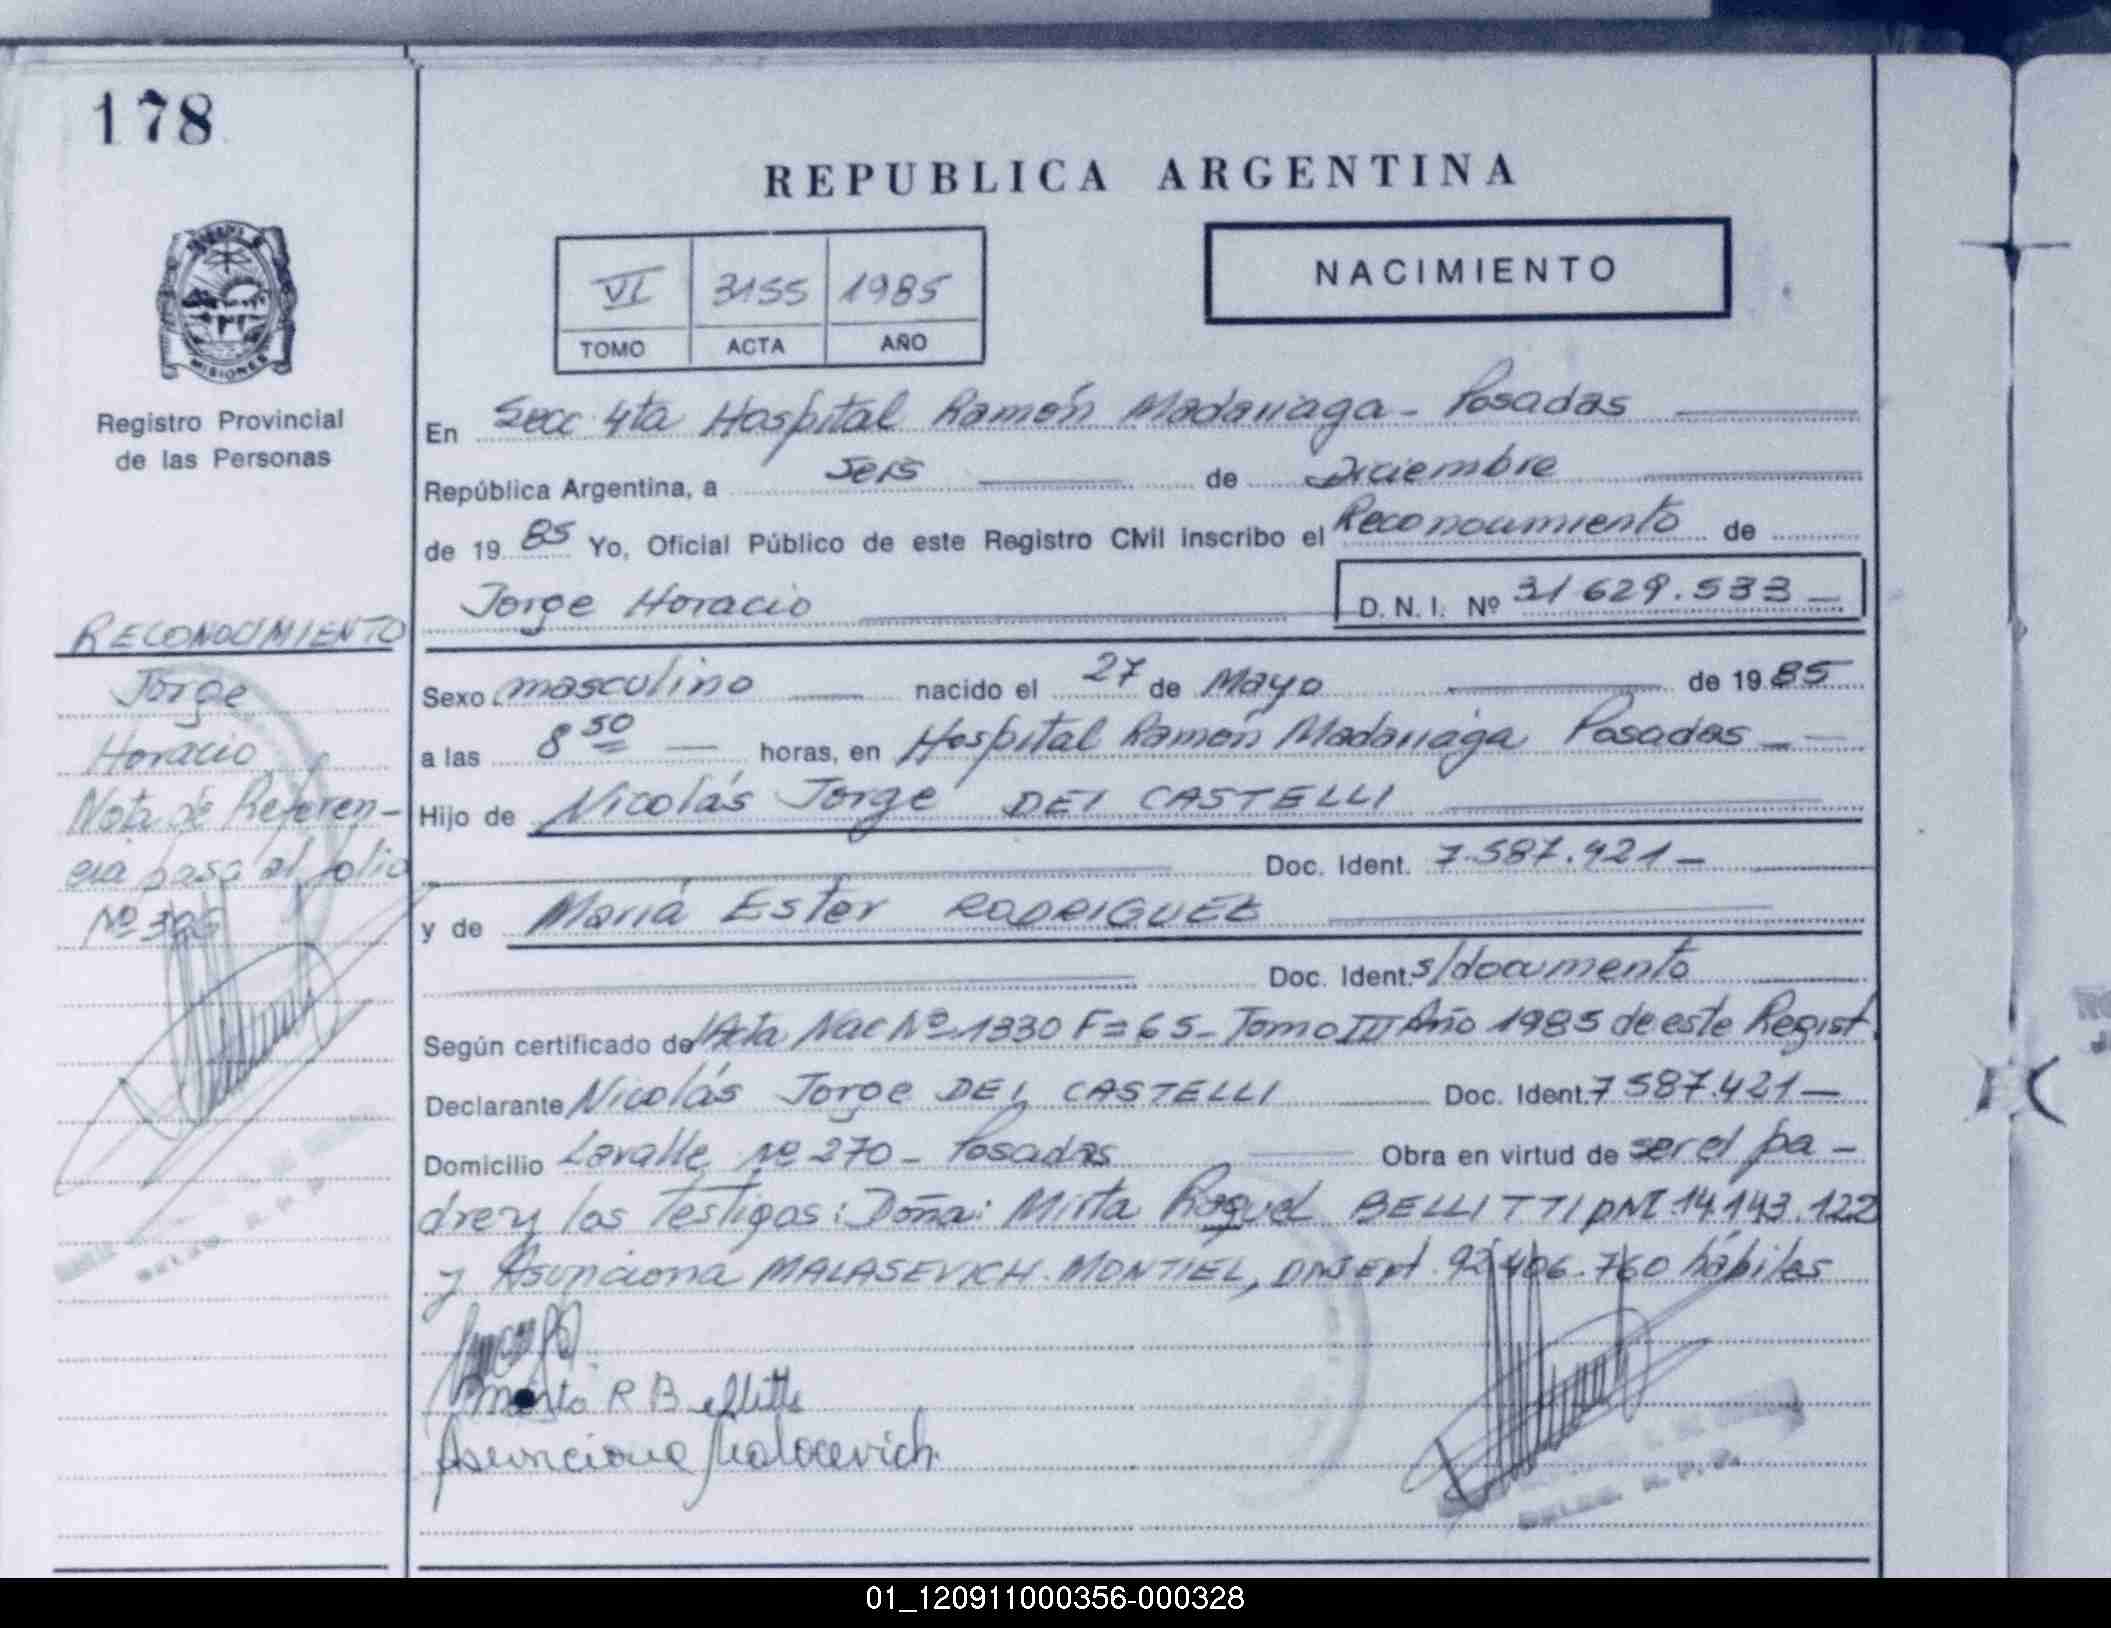 178
REPUBLICA ARGENTINA
VI 3155 1985
TOMO ACTA AÑO
NACIMIENTO
MISIONES
Registro Provincial
de las Personas
En Secc. 4ta Hospital Ramón Madariaga - Posadas
República Argentina, a seis de Diciembre
de 1985 Yo, Oficial Público de este Registro Civil inscribo el Reconocimiento de
Jorge Horacio D.N.I. Nº 31629.533 -
RECONOCIMIENTO
Jorge
Horacio
Nota de Referen-
cia pasa al folio
Nº
Sexo masculino nacido el 27 de Mayo de 1985
a las 8 50 horas, en Hospital Ramón Madariaga Posadas -
Hijo de Nicolás Jorge DEI CASTELLI
Doc. Ident. 7.587.421 -
y de María Ester RODRIGUEZ
Doc. Ident. s/documento
Según certificado de Acta Nac Nº 1330 Fº 65 - Tomo III Año 1985 de este Regist.
Declarante Nicolás Jorge DEI CASTELLI Doc. Ident. 7587.421 -
Domicilio Lavalle Nº 270 - Posadas Obra en virtud de ser el pa-
dre y los testigos: Doña: Mirta Raquel BELLITTI DNI 14.143.122
y Asunciona MALASEVICH MONTIEL, 92.406.760 hábiles
Mirta R Bellitti
Asunciona Malacevich
DELEG. R. P. P.
01_120911000356-000328